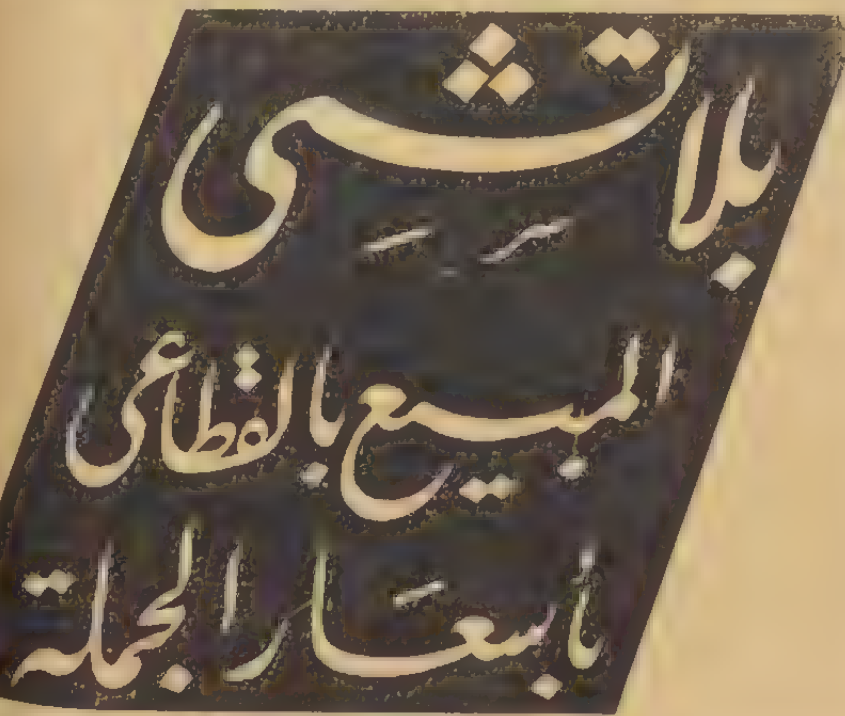 بلاتشى
المبيع بالقطاعى
بأسعار الجملة